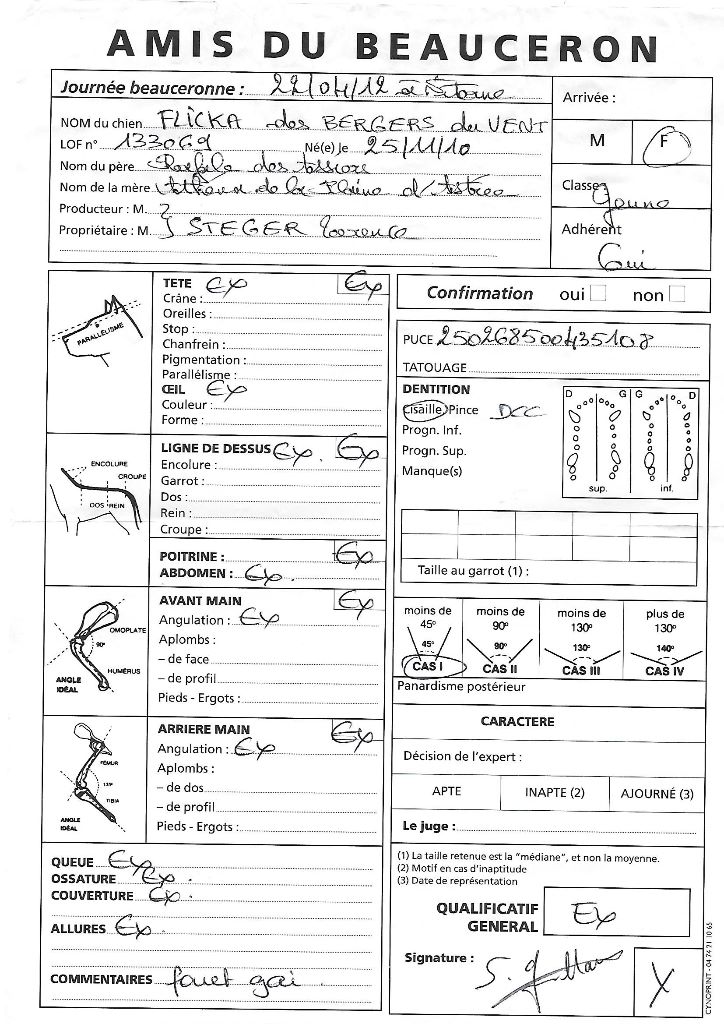 AMIS DU BEAUCERON
Journée beauceronne : 22/04/12 à
Arrivée :
NOM du chien FLICKA des BERGERS du VENT
M F
LOF n° 133069 Né(e) le 25/11/10
Nom du père des
Classe Jeune
Nom de la mère de la Plaine d'Astrée
Producteur : M. ?
Adhérent
Propriétaire : M. STEGER Laurence
Oui
TETE Ex Ex
Crâne :
Oreilles :
Stop :
Chanfrein :
Pigmentation :
Parallélisme :
ŒIL Ex
Couleur :
Forme :
PARALLÉLISME
LIGNE DE DESSUS Ex . Ex
Encolure :
Garrot :
Dos :
Rein :
Croupe :
ENCOLURE
CROUPE
DOS REIN
POITRINE : Ex
ABDOMEN : Ex .
AVANT MAIN Ex
Angulation : Ex
Aplombs :
– de face
– de profil
Pieds - Ergots :
OMOPLATE
90°
HUMÉRUS
ANGLE IDÉAL
ARRIERE MAIN Ex
Angulation : Ex
Aplombs :
– de dos
– de profil
Pieds - Ergots :
FÉMUR
TIBIA
ANGLE IDÉAL
QUEUE Ex
OSSATURE Ex .
COUVERTURE Ex .
ALLURES Ex .
COMMENTAIRES fouet gai .
Confirmation oui non
PUCE 250268500435108
TATOUAGE
DENTITION
Cisaille Pince DCC
Progn. Inf.
Progn. Sup.
Manque(s)
D G G D
sup. inf.
Taille au garrot (1) :
moins de 45° moins de 90° moins de 130° plus de 130°
45° 90° 130° 140°
CAS I CAS II CAS III CAS IV
Panardisme postérieur
CARACTERE
Décision de l'expert :
APTE INAPTE (2) AJOURNÉ (3)
Le juge :
(1) La taille retenue est la "médiane", et non la moyenne.
(2) Motif en cas d'inaptitude
(3) Date de représentation
QUALIFICATIF GENERAL Ex
Signature : S. X
CYNOPRINT - 04 74 21 10 65